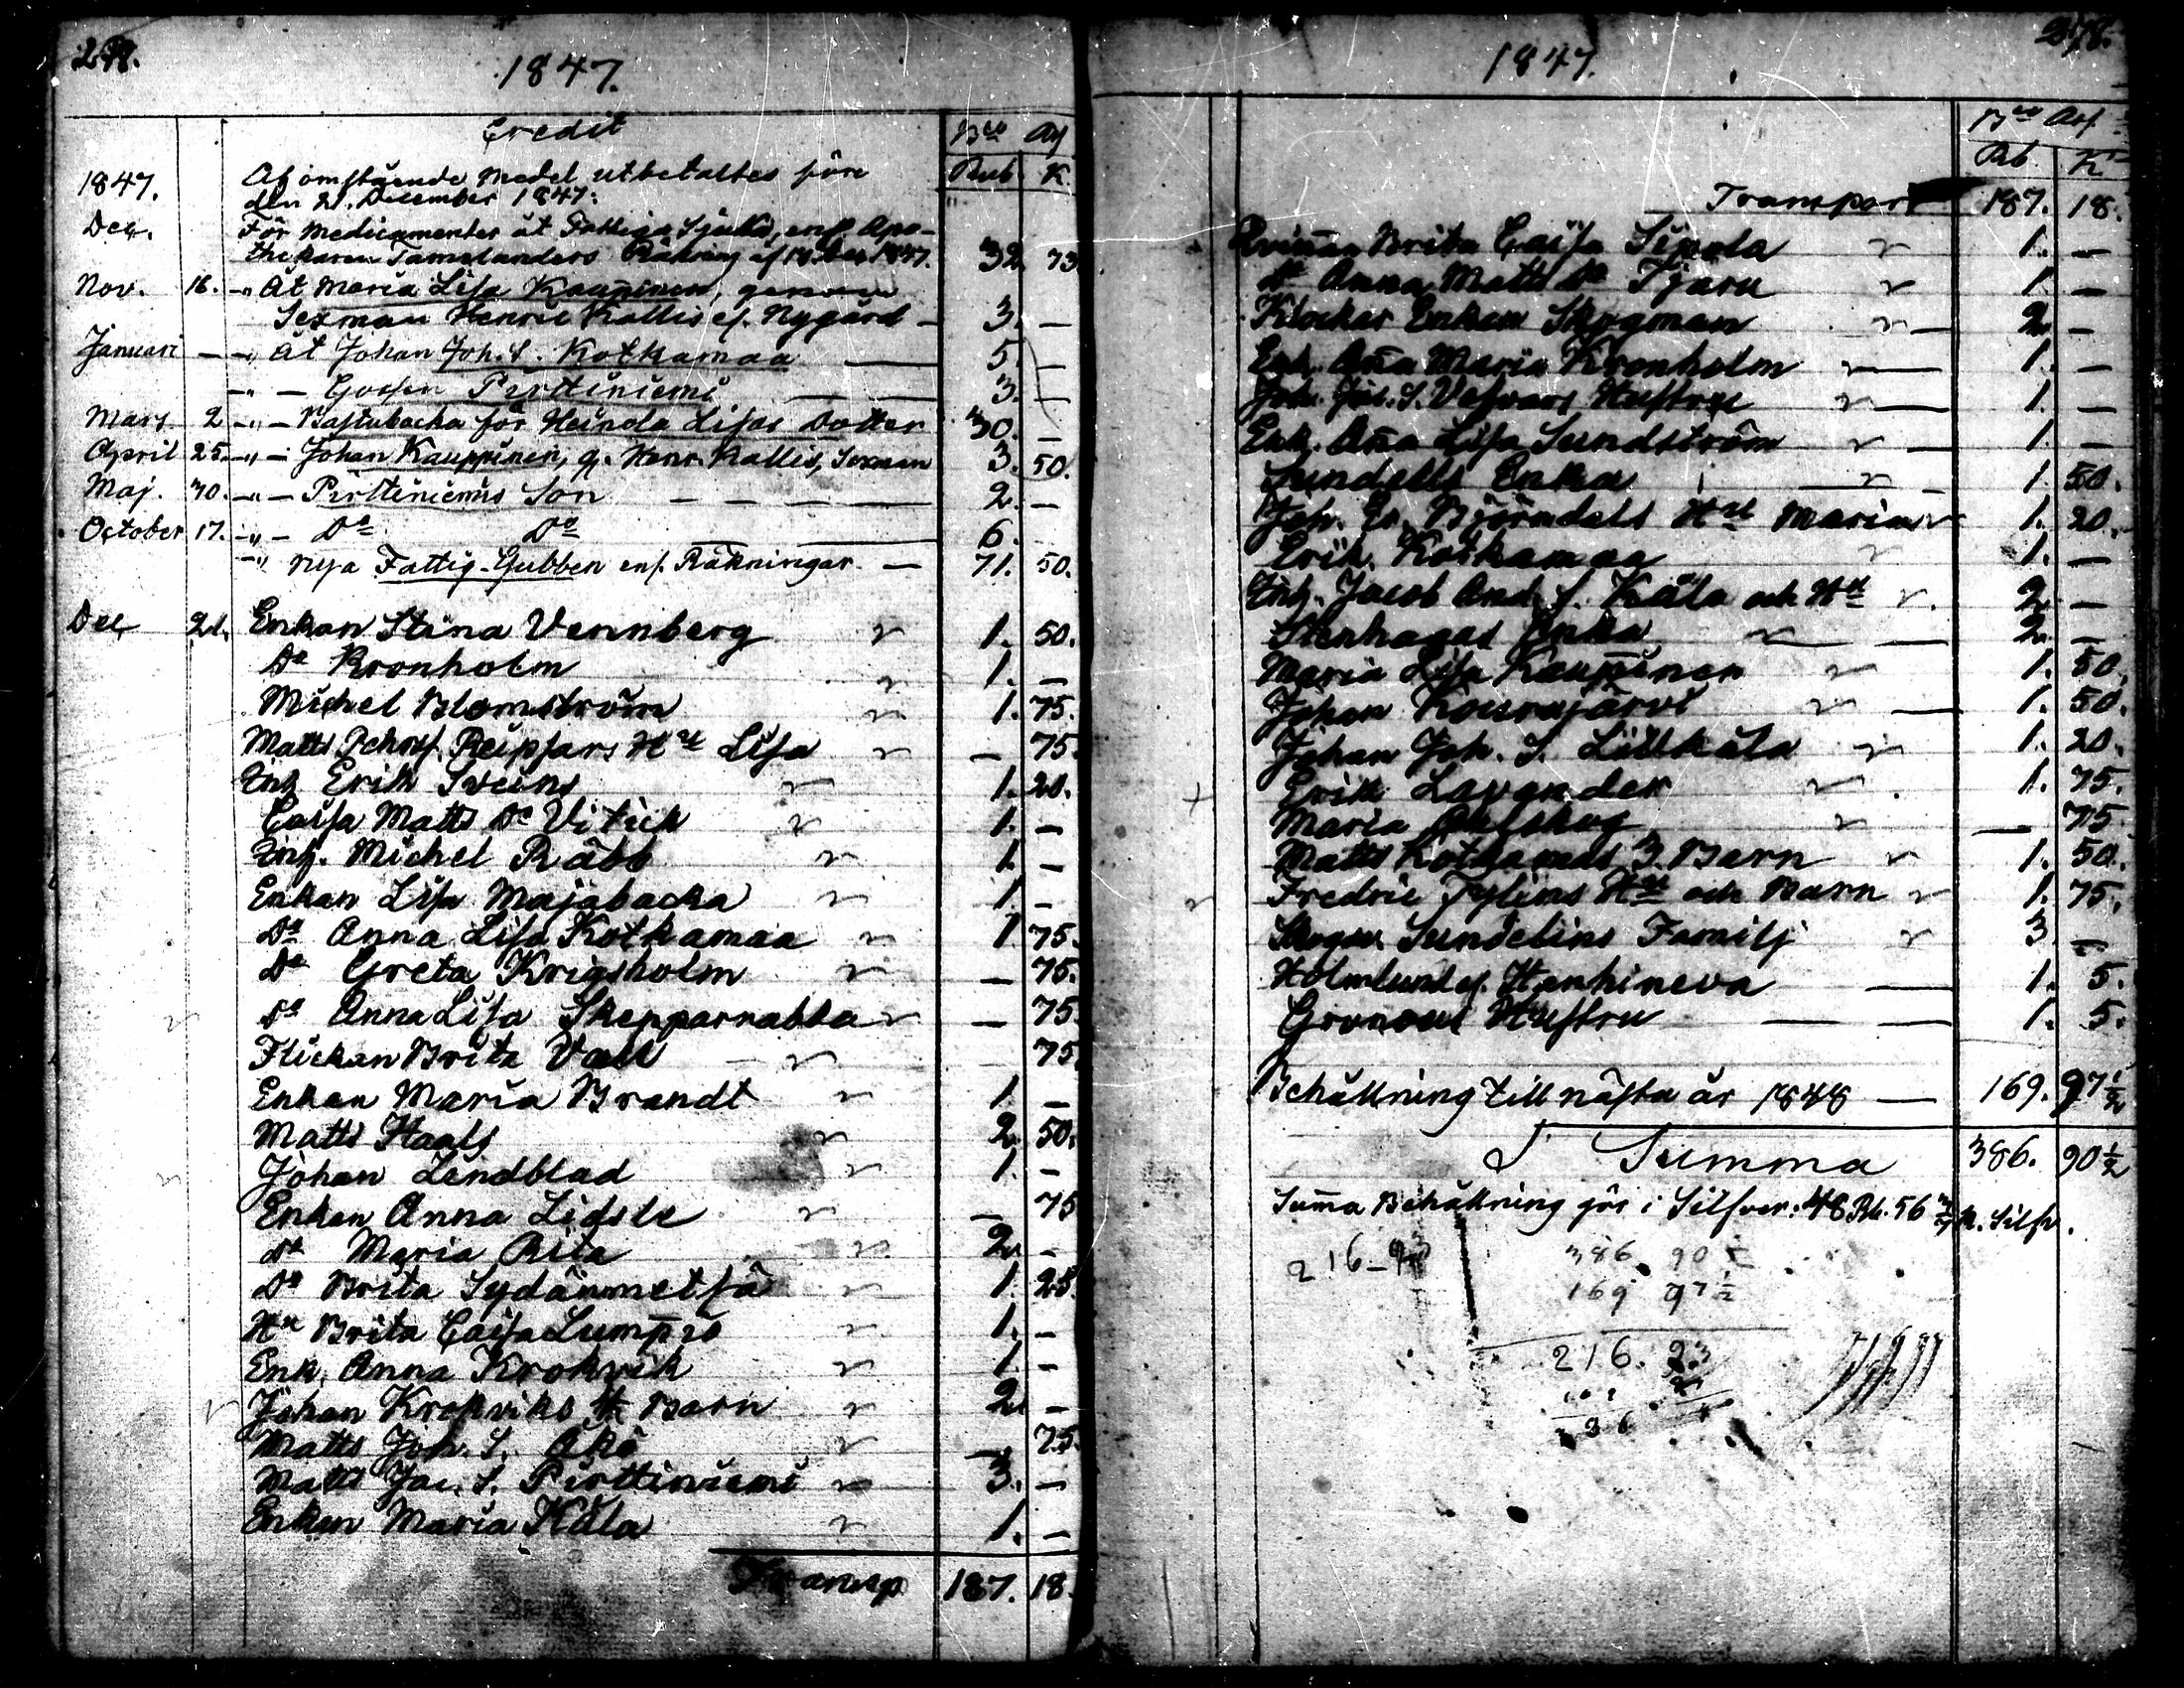 1847.
Credit
Bco Ass
Rub. K.
1847. Af omstående Medel utbetaltes före
den 21. December 1847:
Dec. För Medicamenter åt Fattiga Sjuka, enl. Apo-
thekaren Tamelanders Räkning af 18. Dec. 1847. 32. 73.
Nov. 16. -„ Åt Maria Lisa Kauppinen, genom
Sexman Henric Kallis el. Nygård — 3. —
Januari — -„ Åt Johan Joh. S. Kotkamaa — 5. —
-„ — Gossen Pirttiniemi — 3. —
Mars 2 -„ — Bastubacka för Heinola Lisas Dotter 30. —
April 25. -„ — Johan Kauppinen, g. Henr. Kallis, Sexman 3. 50.
Maj. 30. -„ — Pirttiniemis Son — — — 2. —
October 17. -„ — Do Do — 6.
-„ nya Fattig-Gubben enl. Räkningar. — 71. 50.
Dec. 21. Enkan Stina Vennberg 1. 50.
Do Kronholm 1. —
Michel Blomström 1. 75.
Matts Reipsars Hu Lisa — 75.
Inh. Erik Sveins 1. 20.
Caisa Matts Dr Vitick 1. —
Inh. Michel Räbb 1. —
Enkan Lisa Majabacka 1. —
Do Anna Lisa Kotkamaa 1 75.
Do Greta Krigsholm — 75.
Do Anna Lisa Skepparnabba — 75
Flickan Brita Vall 75
Enkan Maria Brandt 1. —
Matts Haals 2. 50.
Johan Lindblad 1. —
Enkan Anna Lidsle — 75
Do Maria Rita 2. —
Do Brita Sydänmetsä 1. 25
Hu Brita Caisa Lumpio 1. —
Enk. Anna Krokvik 1 —
Johan Krokviks Barn 2. —
Matts Joh. S. Åkö — 75.
Matts Jac. S. Pirttiniemi 3. —
Enkan Maria Kåla 1. —
Transp 187. 18.
278.
1847.
Bco Ass.
Rb K
Transport 187. 18.
Qvinnan Brita Caisa Sipola 1. —
Do Anna Matts Dr Tjäru 1. —
Klockar Enkan Skogman 2. —
Enk. Anna Maria Kronholm 1. —
Joh. Joh. S. Vesvars Hustru 1. —
Enk. Anna Lisa Sundström 1. —
Sundells Enka 1. 50.
Joh. Er. Björndals Hu Maria 1. 20.
Erik Kotkamaa 1. —
Inh. Jacob And. S. Kåla och Hu 2. —
Stenhagas Enka 2. —
Maria Lisa Kauppinen 1. 50.
Johan Kourajärvi 1. 50.
Johan Joh. S. Lillkåla 1. 20.
Erik Lavander 1. 75.
Maria — 75.
Matts Kotkamaas 3. Barn 1. 50.
Fredric Hu och Barn 1. 75.
Skogav. Sundelins Familj 3 —
Holmlund el. Hanhineva 1. 5.
Hustru 1. 5.
Behållning till nästa år 1848 — 169. 97 1/2
Summa 386. 90 1/2
Summa Behållning gör i Silfver: 48 Rb. 56 3/7 k. Silfv.
216-93
386 90 1/2
169 97 1/2
216. 93